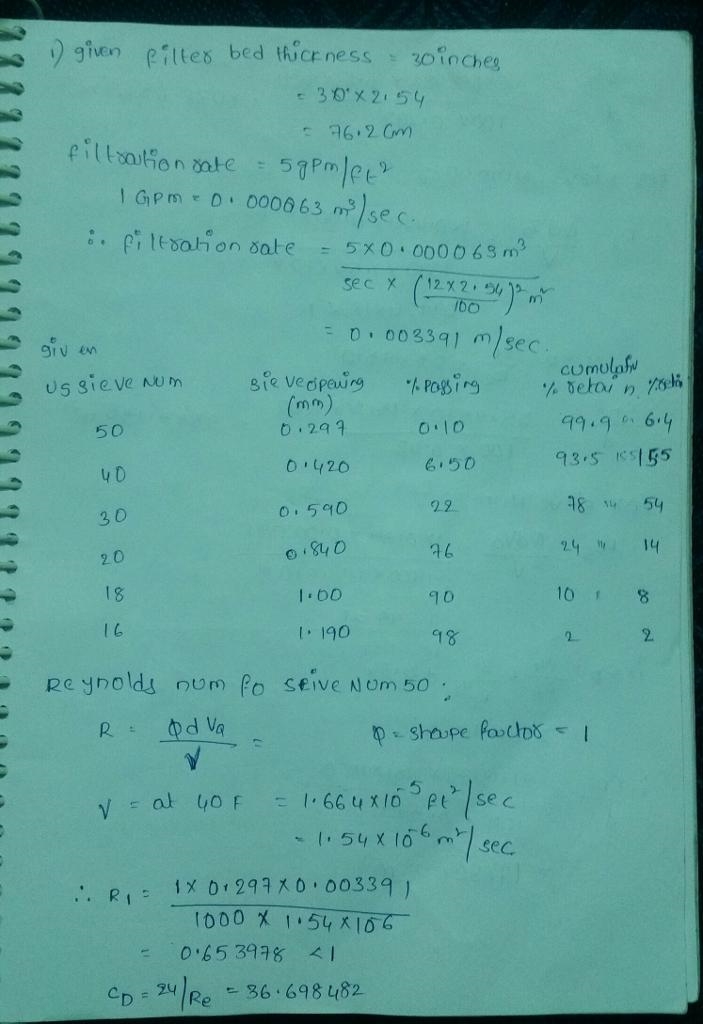 1) given filter bed thickness = 30 inches
= 30 x 2.54
= 76.2 Cm
filtration rate = 5gpm/ft²
1 GPm = 0.000063 m³/sec.
∴ filtration rate = 5x0.000063m³
sec x (12x2.54/100)² m²
= 0.003391 m/sec.
given
US sieve Num sieve opening (mm) % Passing cumulativ % retain %retn
50 0.297 0.10 99.9 6.4
40 0.420 6.50 93.5 15.5
30 0.590 22 78 54
20 0.840 76 24 14
18 1.00 90 10 8
16 1.190 98 2 2
Reynolds num fo seive Num 50 :
R = φd Va / ν = φ = shape factor = 1
ν = at 40 F = 1.664x10⁻⁵ ft²/sec
= 1.54x10⁻⁶ m²/sec
∴ R₁ = 1x 0.297x0.003391
1000 x 1.54x10⁻⁶
= 0.653978 <1
CD = 24/Re = 36.698482